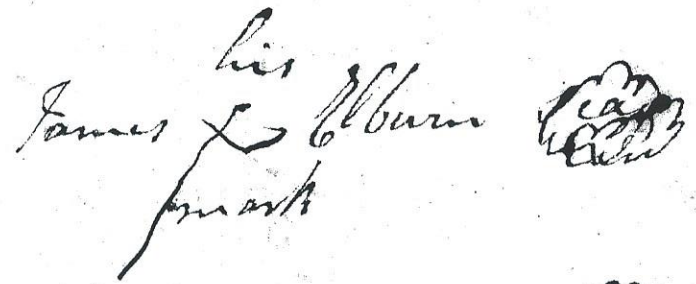 his
James X Elburn
mark